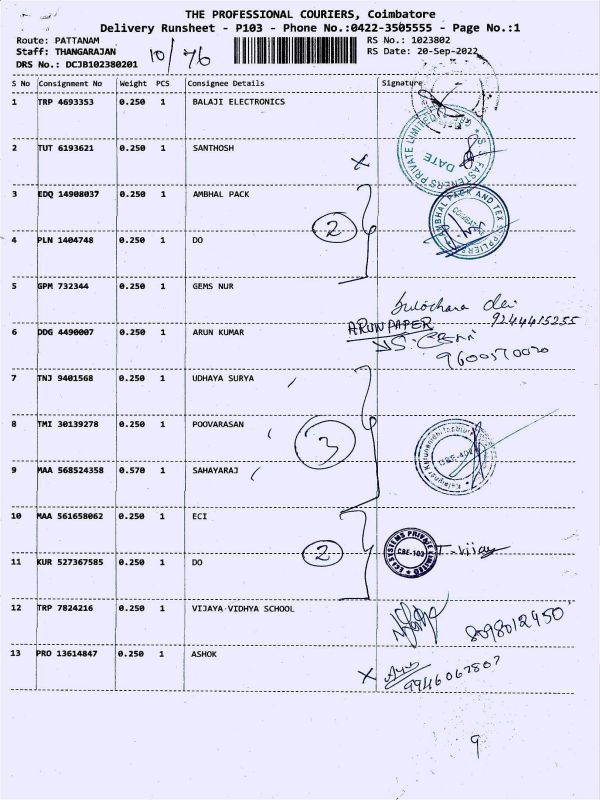 THE PROFESSIONAL COURIERS, Coimbatore
Delivery Runsheet - P103 - Phone No.:0422-3505555 - Page No.:1
Route: PATTANAM RS No.: 1023802
Staff: THANGARAJAN 10/76 RS Date: 20-Sep-2022
DRS No.: DCJB102380201
S No Consignment No Weight PCS Consignee Details Signature
1 TRP 4693353 0.250 1 BALAJI ELECTRONICS
FASTENERS PRIVATE LIMITED
DATE
2 TUT 6193621 0.250 1 SANTHOSH x
3 EDQ 14908037 0.250 1 AMBHAL PACK
AMBHAL PACK AND TEX SUPPLIERS
2
4 PLN 1404748 0.250 1 DO
5 GPM 732344 0.250 1 GEMS NUR
9244415255
ARUN PAPER
6 DDG 4490007 0.250 1 ARUN KUMAR
7 TNJ 9401568 0.250 1 UDHAYA SURYA
8 TMI 30139278 0.250 1 POOVARASAN
3
9 MAA 568524358 0.570 1 SAHAYARAJ
10 MAA 561658062 0.250 1 ECI
2 CBE-103 T. Vijay
11 KUR 527367585 0.250 1 DO
12 TRP 7824216 0.250 1 VIJAYA VIDHYA SCHOOL
8098012450
13 PRO 13614847 0.250 1 ASHOK
x 9946067807
9